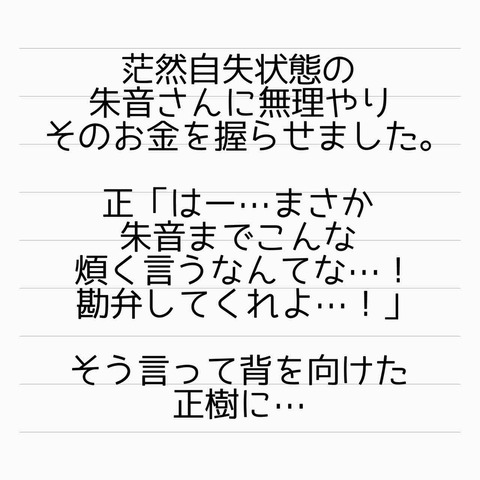 茫然自失状態の
朱音さんに無理やり
そのお金を握らせました。
正「はー…まさか
朱音までこんな
煩く言うなんてな…！
勘弁してくれよ…！」
そう言って背を向けた
正樹に…